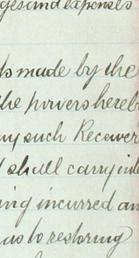 ges and expenses
ps made by the
the powers hereb
ny such Receiver
d shall carry into
ing incurred an
as to restoring